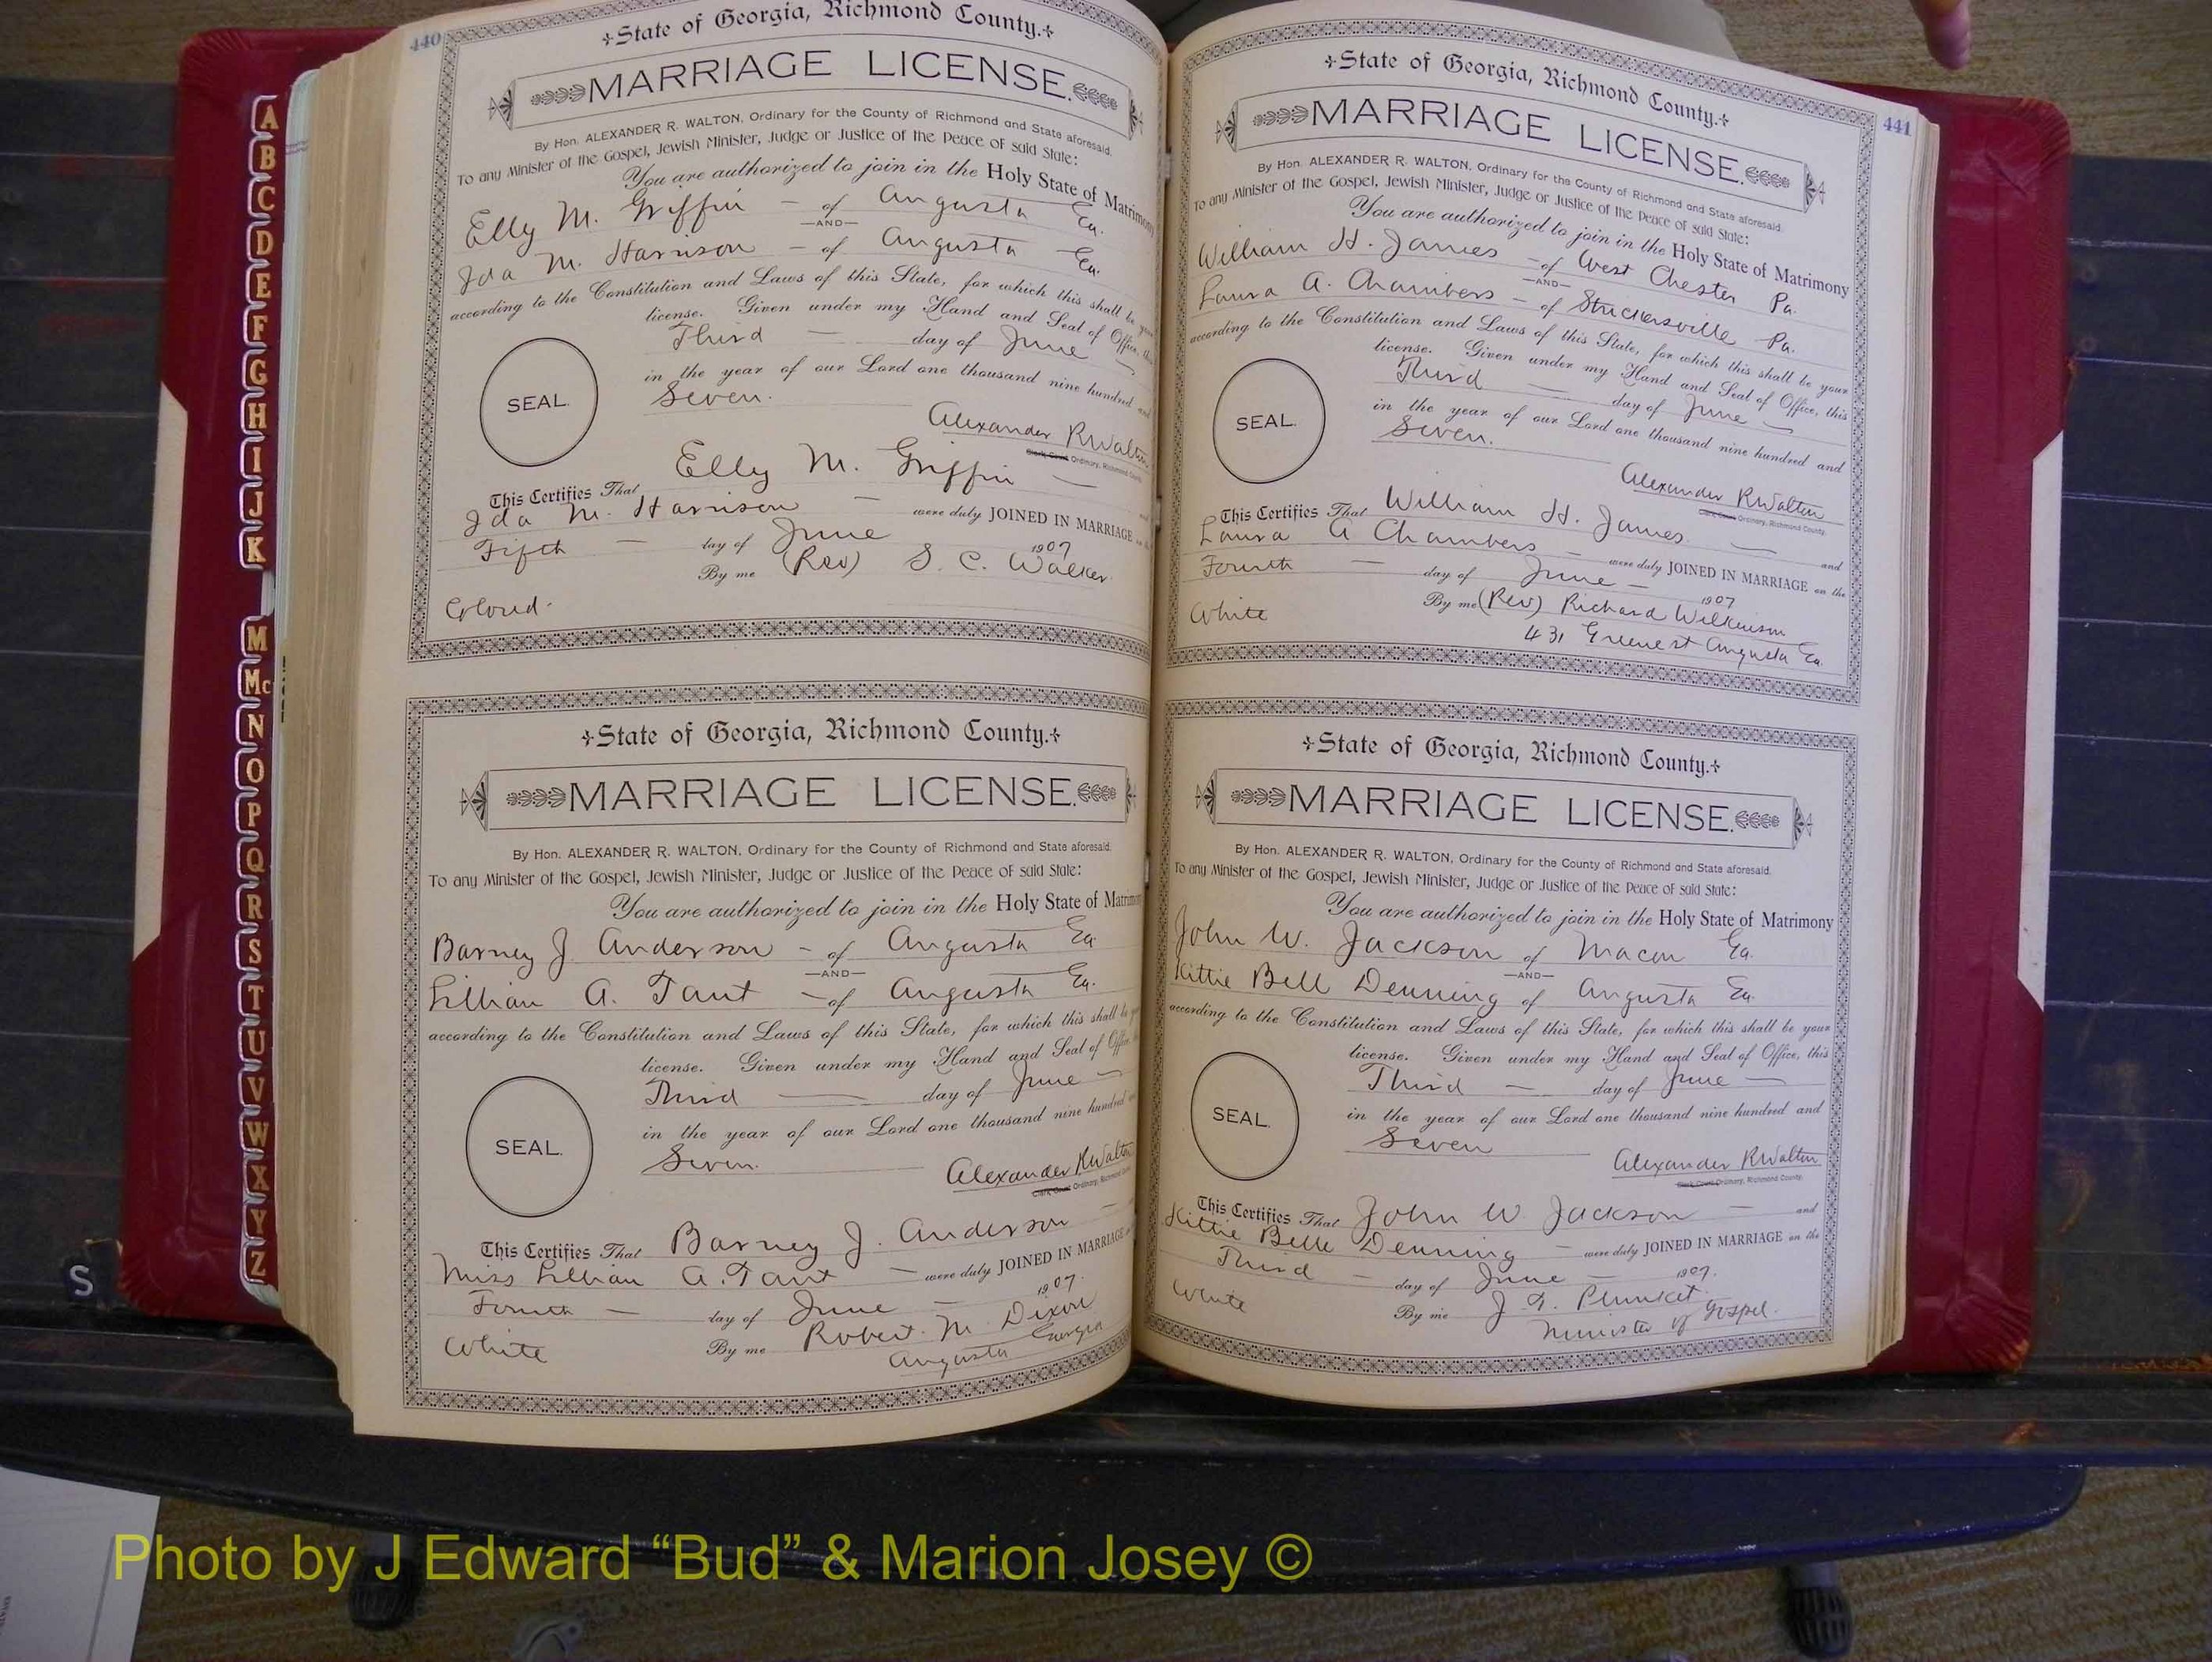 440
State of Georgia, Richmond County.
MARRIAGE LICENSE.
By Hon. ALEXANDER R. WALTON, Ordinary for the County of Richmond and State aforesaid.
To any Minister of the Gospel, Jewish Minister, Judge or Justice of the Peace of said State:
You are authorized to join in the Holy State of Matrimony
Elly M. Griffin — of Augusta Ga.
—AND—
Ida M. Harrison — of Augusta Ga.
according to the Constitution and Laws of this State, for which this shall be
license. Given under my Hand and Seal of Office, this
Third — day of June
in the year of our Lord one thousand nine hundred and
Seven.
SEAL.
Alexander R Walton
Clerk Court Ordinary, Richmond County.
This Certifies That Elly M. Griffin —
Ida M. Harrison — were duly JOINED IN MARRIAGE
Fifth — day of June 1907
By me (Rev) S. C. Walker
Colored.
State of Georgia, Richmond County.
MARRIAGE LICENSE.
By Hon. ALEXANDER R. WALTON, Ordinary for the County of Richmond and State aforesaid.
To any Minister of the Gospel, Jewish Minister, Judge or Justice of the Peace of said State:
You are authorized to join in the Holy State of Matrimony
Barney J. Anderson — of Augusta Ga
—AND—
Lillian A. Tant — of Augusta Ga.
according to the Constitution and Laws of this State, for which this shall be
license. Given under my Hand and Seal of Office
Third — day of June —
in the year of our Lord one thousand nine hundred
Seven.
SEAL.
Alexander R Walton
Clerk Court Ordinary, Richmond
This Certifies That Barney J. Anderson —
Miss Lillian A. Tant — were duly JOINED IN MARRIAGE
Fourth — day of June — 1907.
By me Robert. M Dixon
White
Augusta Georgia
441
State of Georgia, Richmond County.
MARRIAGE LICENSE.
By Hon. ALEXANDER R. WALTON, Ordinary for the County of Richmond and State aforesaid.
To any Minister of the Gospel, Jewish Minister, Judge or Justice of the Peace of said State:
You are authorized to join in the Holy State of Matrimony
William H. James — of West Chester Pa.
—AND—
Laura A. Chambers — of Strickersville Pa.
according to the Constitution and Laws of this State, for which this shall be your
license. Given under my Hand and Seal of Office, this
Third — day of June —
in the year of our Lord one thousand nine hundred and
Seven.
SEAL.
Alexander R Walton
Clerk Court Ordinary, Richmond County.
This Certifies That William H. James — and
Laura A Chambers — were duly JOINED IN MARRIAGE on the
Fourth — day of June — 1907
By me (Rev) Richard Wilkinson
White
431 Greene st Augusta Ga.
State of Georgia, Richmond County.
MARRIAGE LICENSE.
By Hon. ALEXANDER R. WALTON, Ordinary for the County of Richmond and State aforesaid.
To any Minister of the Gospel, Jewish Minister, Judge or Justice of the Peace of said State:
You are authorized to join in the Holy State of Matrimony
John W. Jackson of Macon Ga.
—AND—
Kittie Bell Denning of Augusta Ga.
according to the Constitution and Laws of this State, for which this shall be your
license. Given under my Hand and Seal of Office, this
Third — day of June —
in the year of our Lord one thousand nine hundred and
Seven
SEAL.
Alexander R Walton
Clerk Court Ordinary, Richmond County.
This Certifies That John W Jackson — and
Kittie Belle Denning — were duly JOINED IN MARRIAGE on the
Third — day of June — 1907.
By me J. T. Plunket
White
Minister of Gospel.
A
B
C
D
E
F
G
H
I
J
K
M
Mc
N
O
P
Q
R
S
T
U
V
W
X
Y
Z
S
Photo by J Edward “Bud” & Marion Josey ©